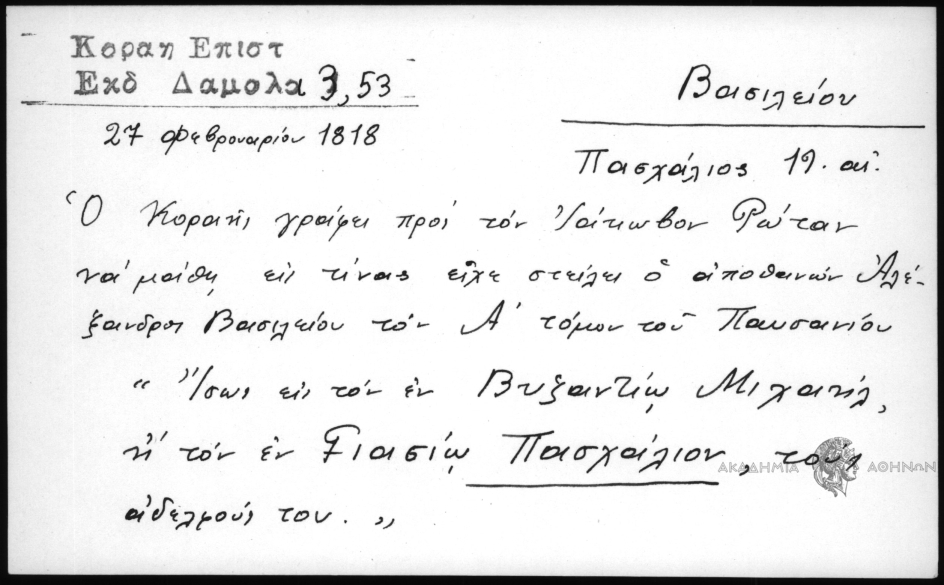 Κοραη Επιστ
Εκδ Δαμολα 3, 53
27 Φεβρουαρίου 1818
Βασιλείου
Πασχάλιος 19. αἰ.
Ὁ Κοραῆς γράφει πρὸς τὸν Ἰάκωβον Ρώταν
νά μάθῃ εἰς τίνας εἶχε στείλει ὁ ἀποθανών Ἀλέ-
ξανδρος Βασιλείου τὸν Α' τόμον τοῦ Παυσανίου
" Ἴσως εἰς τόν ἐν Βυζαντίῳ Μιχαήλ,
ἤ τόν ἐν Γιασίῳ Πασχάλιον, τούς
ἀδελφούς του. "
ΑΚΑΔΗΜΙΑ ΑΘΗΝΩΝ